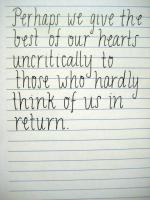 Perhaps we give the
best of our hearts
uncritically to
those who hardly
think of us in
return.